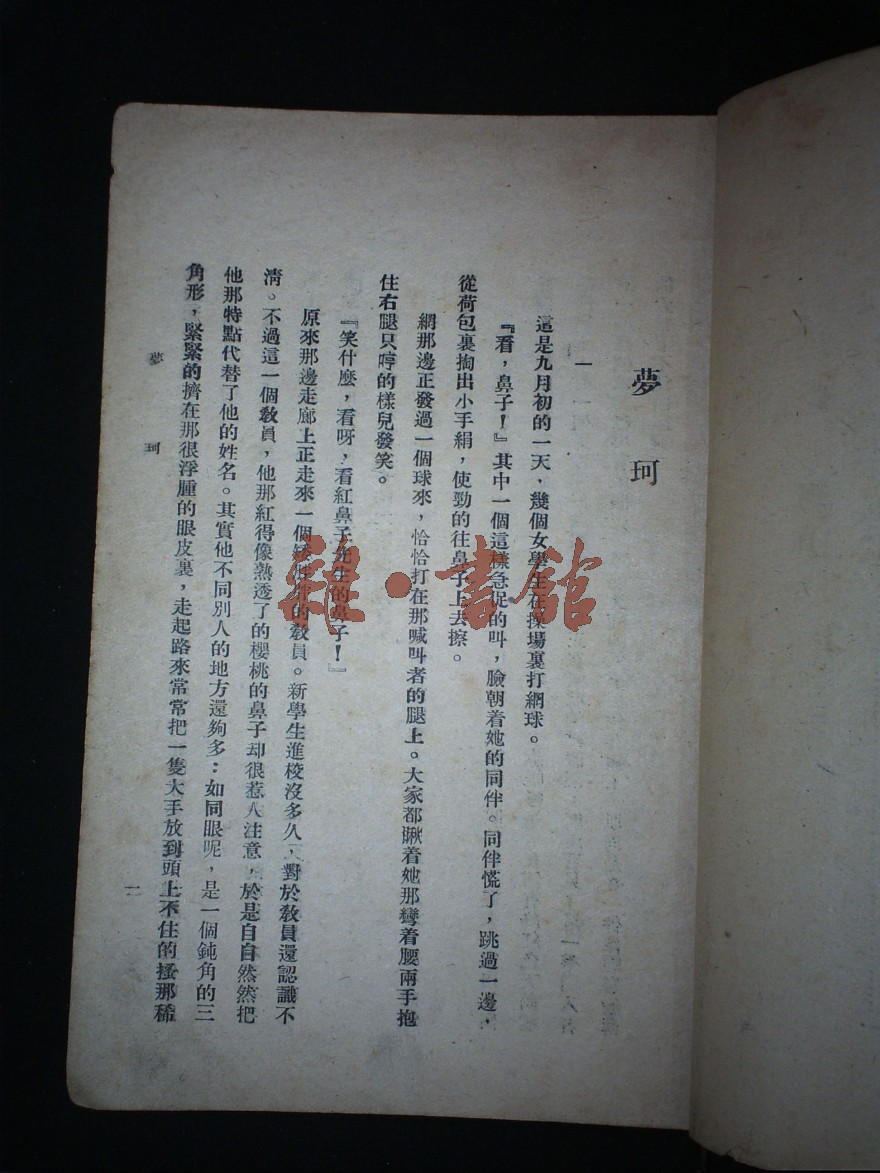 夢珂
一
這是九月初的一天，幾個女學生在操場裏打網球。
『看，鼻子！』其中一個這樣急促的叫，臉朝着她的同伴。同伴慌了，跳過一邊，
從荷包裏掏出小手絹，使勁的往鼻子上去擦。
網那邊正發過一個球來，恰恰打在那喊叫者的腿上。大家都瞅着她那彎着腰兩手抱
住右腿只哼的樣兒發笑。
『笑什麼，看呀，看紅鼻子先生的鼻子！』
原來那邊走廊上正走來一個矮胖胖的教員。新學生進校沒多久，對於教員還認識不
淸。不過這一個教員，他那紅得像熟透了的櫻桃的鼻子却很惹人注意，於是自自然然把
他那特點代替了他的姓名。其實他不同別人的地方還夠多：如同眼呢，是一個鈍角的三
角形，緊緊的擠在那很浮腫的眼皮裏，走起路來常常把一隻大手放到頭上不住的搔那稀
夢珂
一
雜·書館